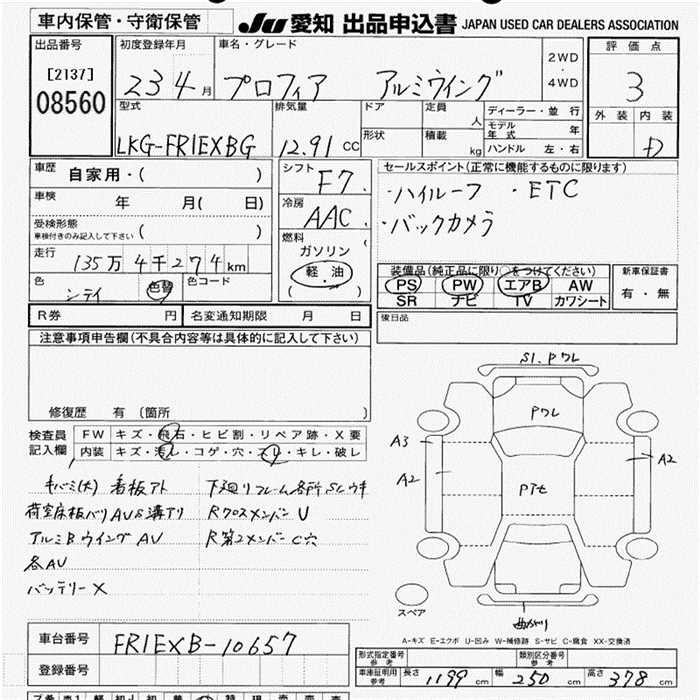 車内保管・守衛保管
JU 愛知 出品申込書 JAPAN USED CAR DEALERS ASSOCIATION
出品番号
[2137]
08560
初度登録年月
23 4月
車名・グレード
プロフィア アルミウイング
2WD
・
4WD
評価点
3
外装 内装
D
型式
LKG-FR1EXBG
排気量
12.91 CC
ドア
定員
人
形状
積載
kg
ディーラー・並行
モデル年式 年
ハンドル 左・右
車歴
自家用・( )
車検
年 月( 日)
受検形態
車検付きのみ記入して下さい ( )
走行
135万4千274km
色
色替 色コード
シフト
F7
冷房
AAC
燃料
ガソリン
軽・油
( )
セールスポイント(正常に機能するものに限ります)
・ハイルーフ ・ETC
・バックカメラ
装備品(純正品に限り○をつけてください)
PS PW エアB AW
SR ナビ TV カワシート
新車保証書
有・無
後日品
R券 円 名変通知期限 月 日
注意事項申告欄(不具合内容等は具体的に記入して下さい)
修復歴 有(箇所 )
検査員
記入欄
FW キズ・飛石・ヒビ割・リペア跡・X要
内装 キズ・汚レ・コゲ・穴・スレ・キレ・破レ
キバミ(大) 看板アト
荷室床板バリAU&溝アリ
アルミBウイングAU
各AU
バッテリーX
下廻りフレーム各所SCウキ
RクロスメンバーU
R第2メンバーC穴
S1.Pワレ
Pワレ
A3
A2
A2
PTセ
曲がり
スペア
A-キズ E-エクボ U-凹み W-補修跡 S-サビ C-腐食 XX-交換済
車台番号
FR1EXB-10657
登録番号
形式指定番号
参考
類別区分番号
参考
車庫証明用
参考
長さ 1199cm 幅 250cm 高さ 378cm